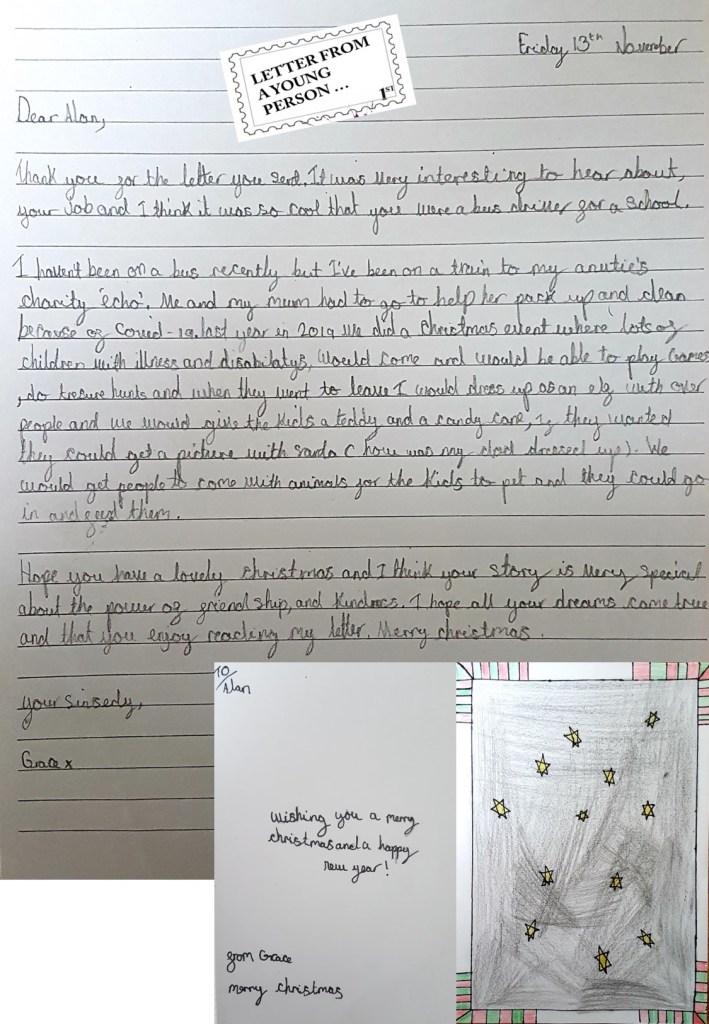 Friday 13th November
LETTER FROM
A YOUNG
PERSON ...
1ST
Dear Alan,
Thank you for the letter you sent. It was very interesting to hear about,
your Job and I think it was so cool that you were a bus driver for a school.
I haven't been on a bus recently but I've been on a train to my anutie's
charity 'echo'. Me and my mum had to go to help her pack up and clean
because of Covid-19. last year in 2019 we did a christmas event where lots of
children with illness and disabilatys, would come and would be able to play Games
, do tresure hunts and when they went to leave I would dress up as an elf with over
people and we would give the kids a teddy and a candy cane, if they wanted
they could get a picture with santa ( how was my dad dressed up). We
would get people to come with animals for the kids to pet and they could go
in and feed them.
Hope you have a lovely christmas and I think your story is very special
about the power of friend ship, and kindness. I hope all your dreams come true
and that you enjoy reading my letter. Merry christmas.
your sinserly,
Grace x
TO/
Alan
wishing you a merry
christmas and a happy
new year!
from Grace
merry christmas